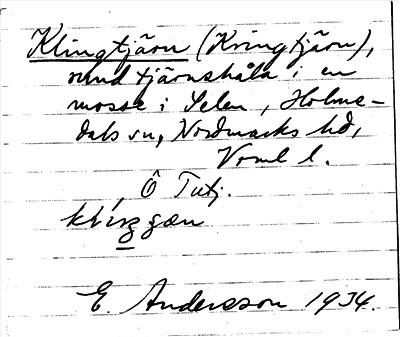 Klingtjärn (Kringtjärn),
rund tjärnshåla i en
mosse i Selen, Holme-
dals sn, Nordmarks hd,
Vrml l.
Ö Tutj.
E. Andersson 1934.